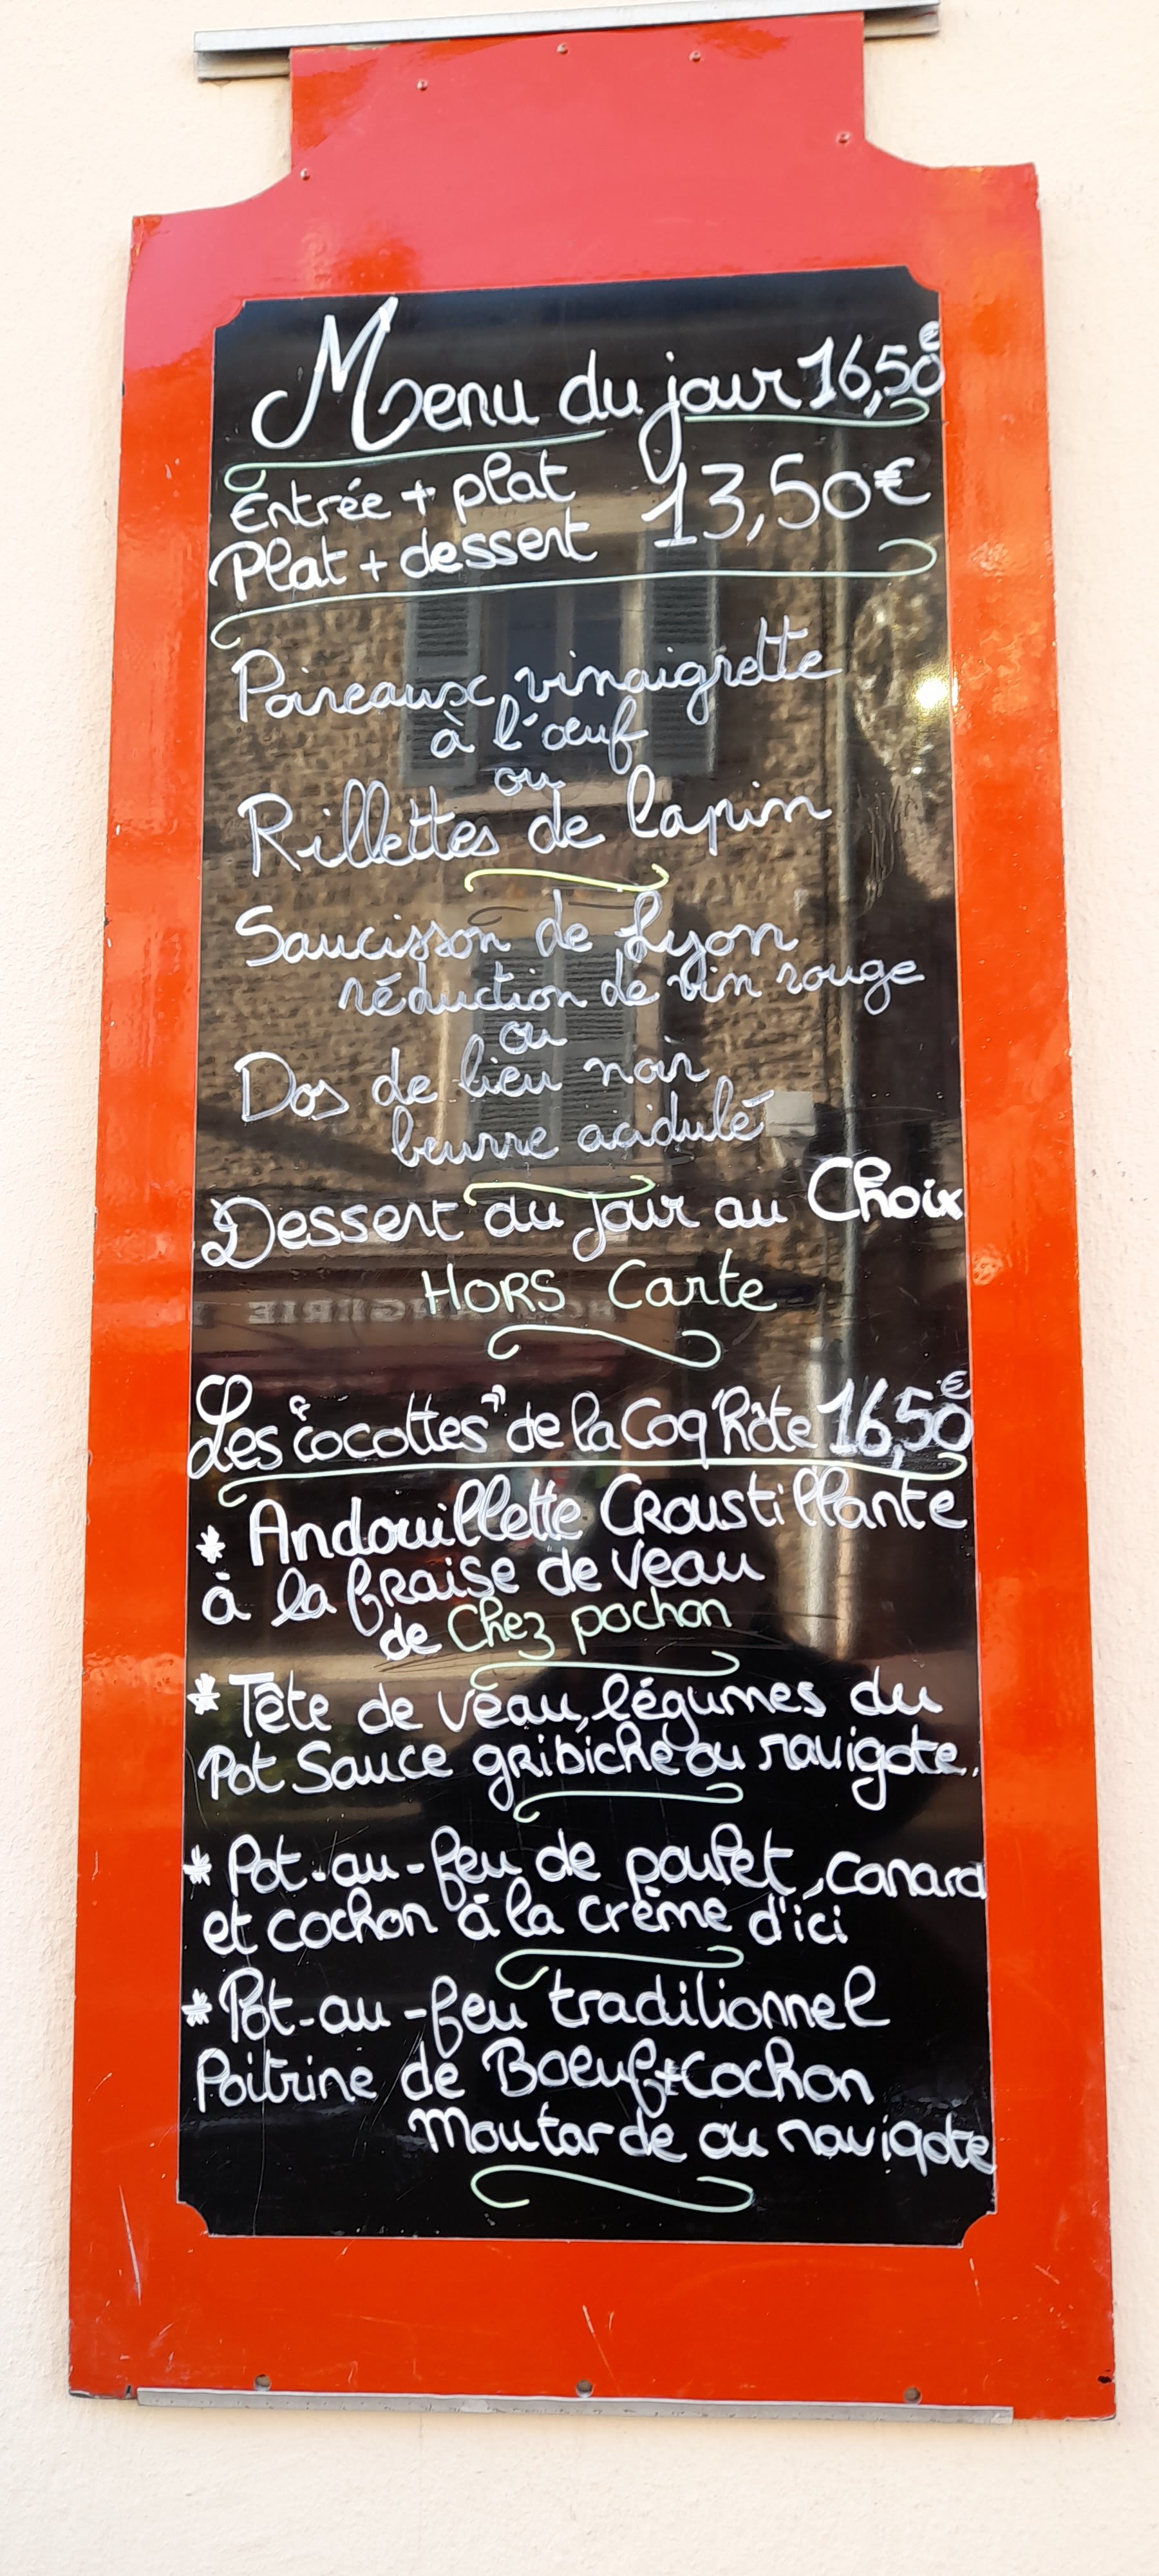 Menu du jour 16,50€
Entrée + plat
Plat + dessert 13,50€
Poireaux vinaigrette
à l'œuf
ou
Rillettes de lapin
Saucisson de Lyon
réduction de vin rouge
ou
Dos de lieu noir
beurre acidulé
Dessert du jour au Choix
HORS Carte
Les "cocottes" de la Coq'hôte 16,50€
* Andouillette Croustillante
à la fraise de veau
de Chez pochon
* Tête de veau, légumes du
Pot Sauce gribiche ou ravigote.
* Pot-au-feu de poulet, canard
et cochon à la crème d'ici
* Pot-au-feu traditionnel
Poitrine de Boeuf + Cochon
Moutarde ou ravigote